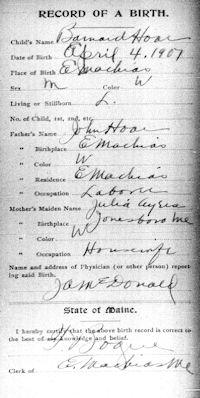 RECORD OF A BIRTH.
Child's Name Barnard Hoar
Date of Birth April 4, 1907
Place of Birth E Machias
Sex M Color W
Living or Stillborn L.
No. of Child, 1st, 2nd, etc.
Father's Name John Hoar
" Birthplace E Machias
" Color W
" Residence E Machias
" Occupation Laborer
Mother's Maiden Name Julia Ayers
" Birthplace Jonesboro Me
" Color W
" Occupation Housewife
Name and address of Physician (or other person) report-
ing said Birth.
J A McDonald
State of Maine.
I hereby certify that the above birth record is correct to
the best of my knowledge and belief.
Clerk of E. Machias Me